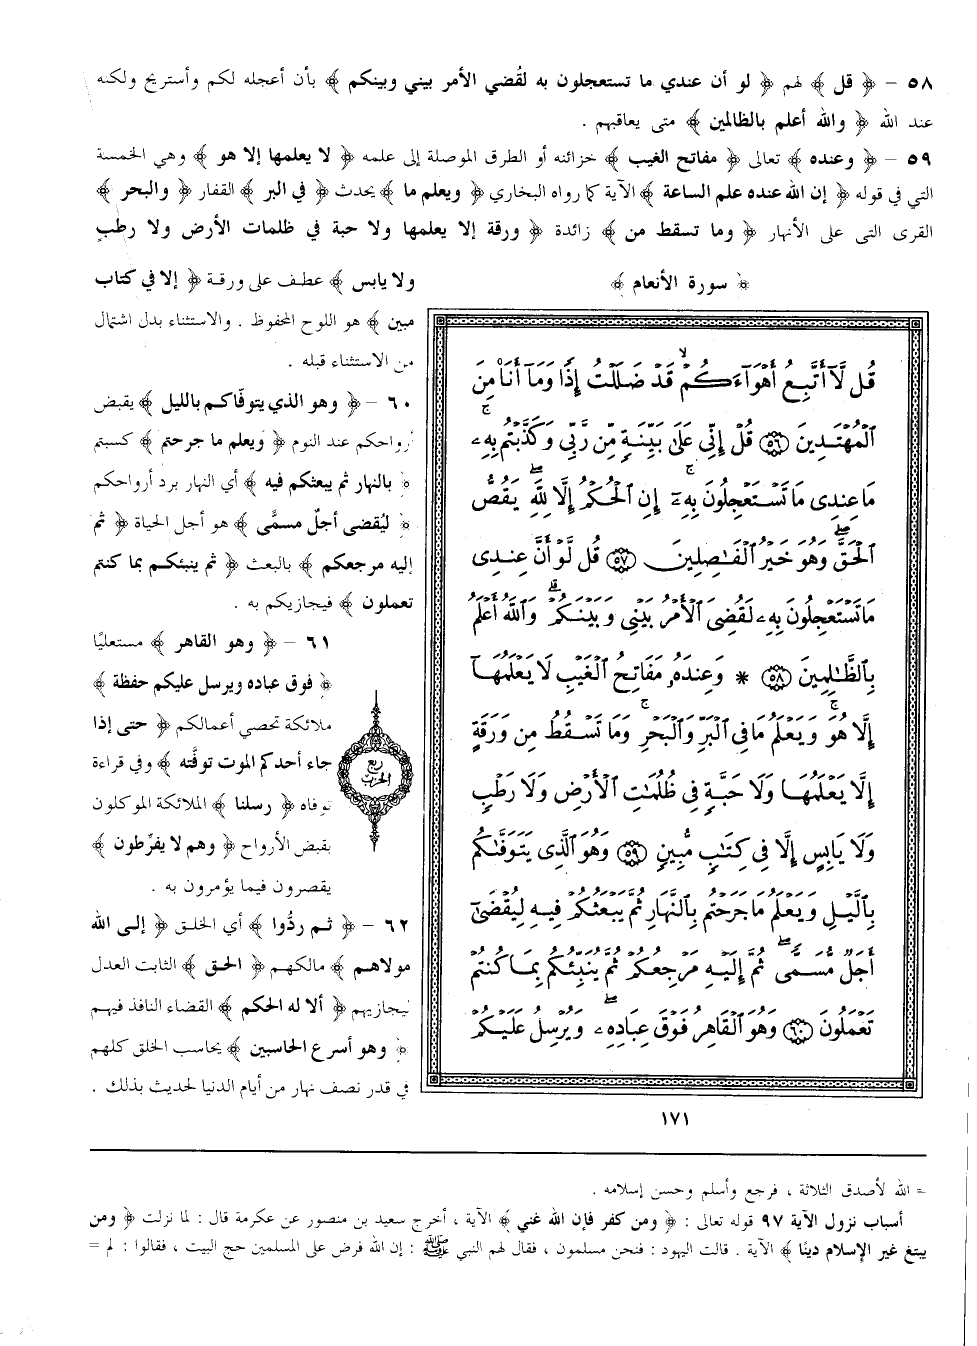 ٥٨ – ﴿ قل ﴾ لهم ﴿ لو أن عندي ما تستعجلون به لقُضي الأمر بيني وبينكم ﴾ بأن أعجله لكم وأستريح ولكنه
عند الله ﴿ والله أعلم بالظالمين ﴾ متى يعاقبهم .
٥٩ – ﴿ وعنده ﴾ تعالى ﴿ مفاتح الغيب ﴾ خزائنه أو الطرق الموصلة إلى علمه ﴿ لا يعلمها إلا هو ﴾ وهي الخمسة
التي في قوله ﴿ إن الله عنده علم الساعة ﴾ الآية كما رواه البخاري ﴿ ويعلم ما ﴾ يحدث ﴿ في البر ﴾ القفار ﴿ والبحر ﴾
القرى التي على الأنهار ﴿ وما تسقط من ﴾ زائدة ﴿ ورقة إلا يعلمها ولا حبة في ظلمات الأرض ولا رطبٍ
ولا يابس ﴾ عطف على ورقة ﴿ إلا في كتاب
مبين ﴾ هو اللوح المحفوظ . والاستثناء بدل اشتمال
من الاستثناء قبله .
٦٠ – ﴿ وهو الذي يتوفّاكم بالليل ﴾ يقبض
أرواحكم عند النوم ﴿ ويعلم ما جرحتم ﴾ كسبتم
﴿ بالنهار ثم يبعثكم فيه ﴾ أي النهار برد أرواحكم
﴿ ليُقضى أجلٌ مسمًّى ﴾ هو أجل الحياة ﴿ ثم
إليه مرجعكم ﴾ بالبعث ﴿ ثم ينبئكم بما كنتم
تعملون ﴾ فيجازيكم به .
٦١ – ﴿ وهو القاهر ﴾ مستعليًا
﴿ فوق عباده ويرسل عليكم حفظة ﴾
ملائكة تحصي أعمالكم ﴿ حتى إذا
جاء أحدكم الموت توفَّته ﴾ وفي قراءة
توفاه ﴿ رسلنا ﴾ الملائكة الموكلون
بقبض الأرواح ﴿ وهم لا يفرِّطون ﴾
يقصرون فيما يؤمرون به .
٦٢ – ﴿ ثم ردُّوا ﴾ أي الخلق ﴿ إلى الله
مولاهم ﴾ مالكهم ﴿ الحق ﴾ الثابت العدل
ليجازيهم ﴿ ألا له الحكم ﴾ القضاء النافذ فيهم
﴿ وهو أسرع الحاسبين ﴾ يحاسب الخلق كلهم
في قدر نصف نهار من أيام الدنيا لحديث بذلك .
﴿ سورة الأنعام ﴾
قُل لَّآ أَتَّبِعُ أَهْوَآءَكُمْ ۙ قَدْ ضَلَلْتُ إِذًا وَمَآ أَنَا۠ مِنَ
ٱلْمُهْتَدِينَ ﴿٥٦﴾ قُلْ إِنِّى عَلَىٰ بَيِّنَةٍ مِّن رَّبِّى وَكَذَّبْتُم بِهِۦ ۚ
مَا عِندِى مَا تَسْتَعْجِلُونَ بِهِۦٓ ۚ إِنِ ٱلْحُكْمُ إِلَّا لِلَّهِ ۖ يَقُصُّ
ٱلْحَقَّ ۖ وَهُوَ خَيْرُ ٱلْفَـٰصِلِينَ ﴿٥٧﴾ قُل لَّوْ أَنَّ عِندِى
مَا تَسْتَعْجِلُونَ بِهِۦ لَقُضِىَ ٱلْأَمْرُ بَيْنِى وَبَيْنَكُمْ ۗ وَٱللَّهُ أَعْلَمُ
بِٱلظَّـٰلِمِينَ ﴿٥٨﴾ * وَعِندَهُۥ مَفَاتِحُ ٱلْغَيْبِ لَا يَعْلَمُهَآ
إِلَّا هُوَ ۚ وَيَعْلَمُ مَا فِى ٱلْبَرِّ وَٱلْبَحْرِ ۚ وَمَا تَسْقُطُ مِن وَرَقَةٍ
إِلَّا يَعْلَمُهَا وَلَا حَبَّةٍ فِى ظُلُمَـٰتِ ٱلْأَرْضِ وَلَا رَطْبٍ
وَلَا يَابِسٍ إِلَّا فِى كِتَـٰبٍ مُّبِينٍ ﴿٥٩﴾ وَهُوَ ٱلَّذِى يَتَوَفَّىٰكُم
بِٱلَّيْلِ وَيَعْلَمُ مَا جَرَحْتُم بِٱلنَّهَارِ ثُمَّ يَبْعَثُكُمْ فِيهِ لِيُقْضَىٰٓ
أَجَلٌ مُّسَمًّى ۖ ثُمَّ إِلَيْهِ مَرْجِعُكُمْ ثُمَّ يُنَبِّئُكُم بِمَا كُنتُمْ
تَعْمَلُونَ ﴿٦٠﴾ وَهُوَ ٱلْقَاهِرُ فَوْقَ عِبَادِهِۦ ۖ وَيُرْسِلُ عَلَيْكُمْ
ربع
الحزب
١٧١
= الله لأصدق الثلاثة ، فرجع وأسلم وحسن إسلامه .
أسباب نزول الآية ٩٧ قوله تعالى : ﴿ ومن كفر فإن الله غني ﴾ الآية ، أخرج سعيد بن منصور عن عكرمة قال : لما نزلت ﴿ ومن
يبتغ غير الإسلام دينًا ﴾ الآية . قالت اليهود : فنحن مسلمون ، فقال لهم النبي ﷺ : إن الله فرض على المسلمين حج البيت ، فقالوا : لم =